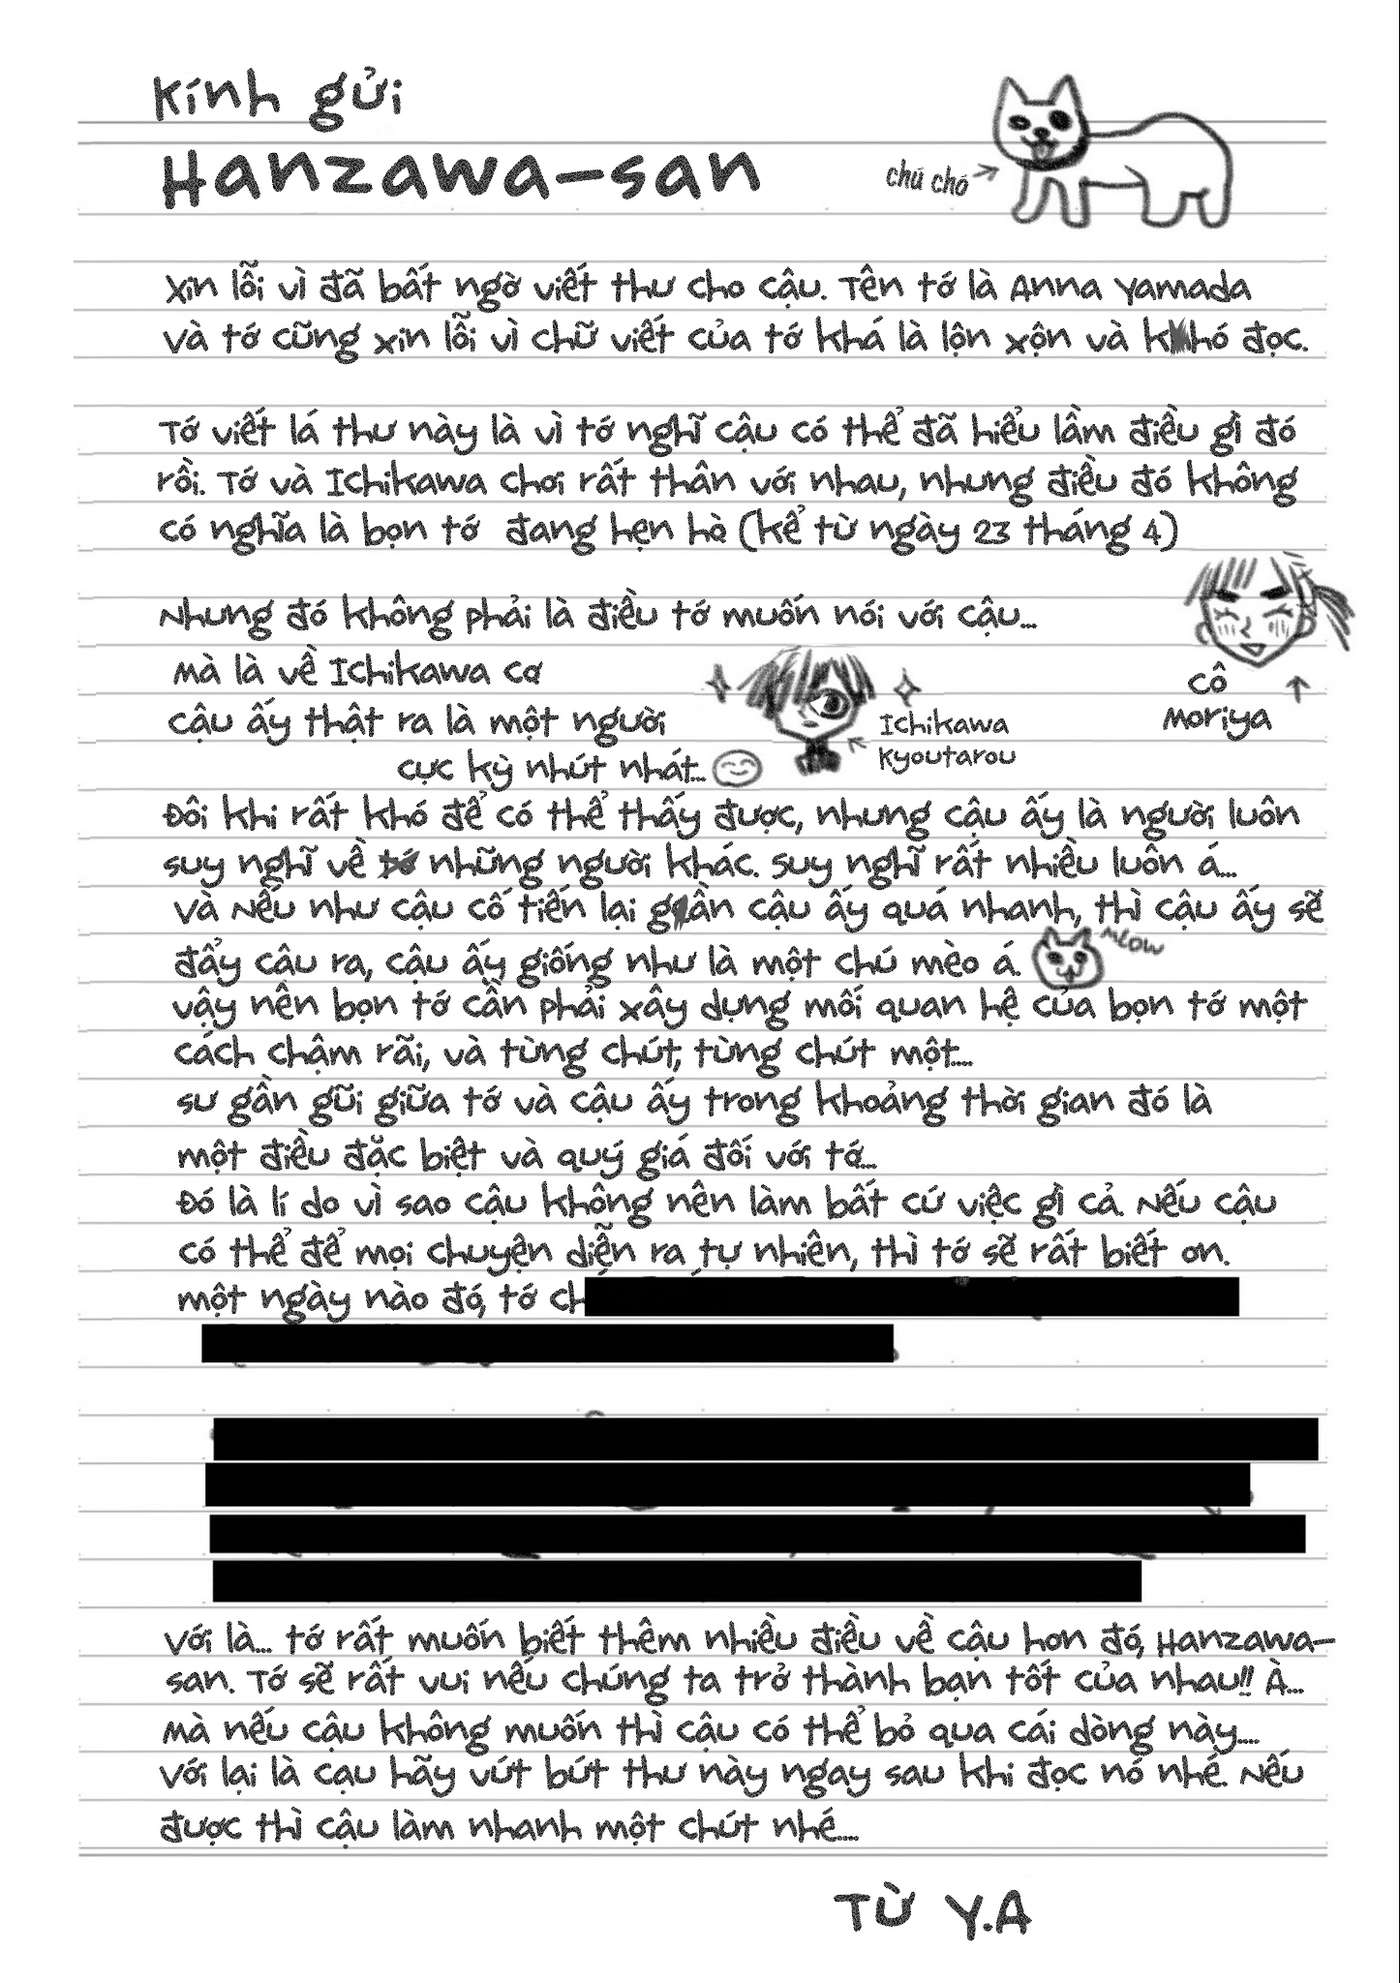 Kính gửi
Hanzawa-san
chú chó
Xin lỗi vì đã bất ngờ viết thư cho cậu. Tên tớ là Anna Yamada
và tớ cũng xin lỗi vì chữ viết của tớ khá là lộn xộn và khó đọc.
Tớ viết lá thư này là vì tớ nghĩ cậu có thể đã hiểu lầm điều gì đó
rồi. Tớ và Ichikawa chơi rất thân với nhau, nhưng điều đó không
có nghĩa là bọn tớ đang hẹn hò (kể từ ngày 23 tháng 4)
Nhưng đó không phải là điều tớ muốn nói với cậu...
mà là về Ichikawa cơ
cậu ấy thật ra là một người
cực kỳ nhút nhát...
Ichikawa
Kyoutarou
cô
Moriya
Đôi khi rất khó để có thể thấy được, nhưng cậu ấy là người luôn
suy nghĩ về tớ những người khác. Suy nghĩ rất nhiều luôn á...
và Nếu như cậu cố tiến lại gần cậu ấy quá nhanh, thì cậu ấy sẽ
đẩy câu ra, cậu ấy giống như là một chú mèo á.
meow
vậy nên bọn tớ cần phải xây dựng mối quan hệ của bọn tớ một
cách chậm rãi, và từng chút, từng chút một....
sự gần gũi giữa tớ và cậu ấy trong khoảng thời gian đó là
một điều đặc biệt và quý giá đối với tớ...
Đó là lí do vì sao cậu không nên làm bất cứ việc gì cả. Nếu cậu
có thể để mọi chuyện diễn ra tự nhiên, thì tớ sẽ rất biết ơn.
một ngày nào đó, tớ
Với là... tớ rất muốn biết thêm nhiều điều về cậu hơn đó, Hanzawa-
san. Tớ sẽ rất vui nếu chúng ta trở thành bạn tốt của nhau!! À...
Mà nếu cậu không muốn thì cậu có thể bỏ qua cái dòng này....
Với lại là cạu hãy vứt bứt thư này ngay sau khi đọc nó nhé. Nếu
được thì cậu làm nhanh một chút nhé....
Từ Y.A